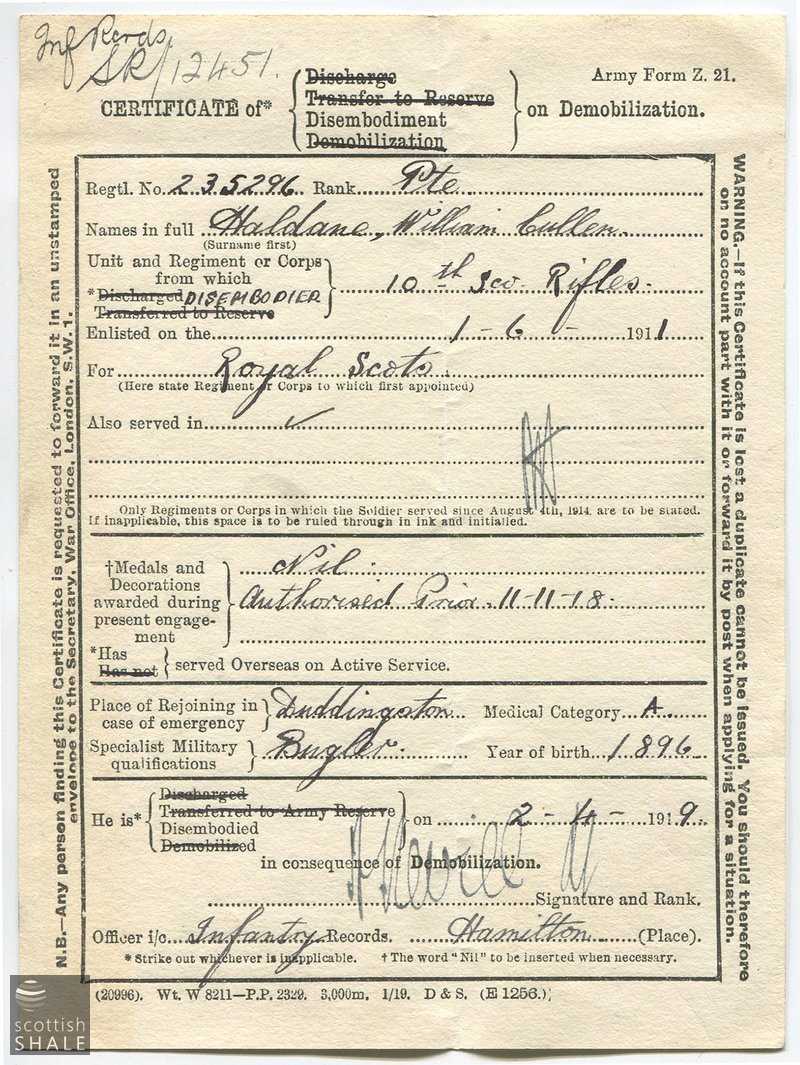 Inf Recrds
SR/12451.
Army Form Z. 21.
CERTIFICATE of* { Discharge
Transfer to Reserve
Disembodiment
Demobilization } on Demobilization.
Regtl. No. 235296 Rank Pte
Names in full Haldane, William Cullen.
(Surname first)
Unit and Regiment or Corps
from which
*Discharged DISEMBODIED
Transferred to Reserve } 10th Sco. Rifles.
Enlisted on the 1-6- 1911
For Royal Scots.
(Here state Regiment or Corps to which first appointed)
Also served in ✓
Only Regiments or Corps in which the Soldier served since August 4th, 1914, are to be stated.
If inapplicable, this space is to be ruled through in ink and initialled.
†Medals and
Decorations
awarded during
present engage-
ment } Nil.
Authorised Prior 11-11-18.
*Has
Has not } served Overseas on Active Service.
Place of Rejoining in
case of emergency } Duddingston Medical Category A.
Specialist Military
qualifications } Bugler. Year of birth 1896
He is* { Discharged
Transferred to Army Reserve
Disembodied
Demobilized } on 2-4- 1919.
in consequence of Demobilization.
Signature and Rank.
Officer i/c. Infantry Records. Hamilton (Place).
* Strike out whichever is inapplicable. † The word "Nil" to be inserted when necessary.
(20996). Wt. W 8211—P.P. 2329. 3,000m. 1/19. D & S. (E 1256.)
N.B.—Any person finding this Certificate is requested to forward it in an unstamped
envelope to the Secretary, War Office, London, S.W. 1.
WARNING.—If this Certificate is lost a duplicate cannot be issued. You should therefore
on no account part with it or forward it by post when applying for a situation.
scottish
SHALE